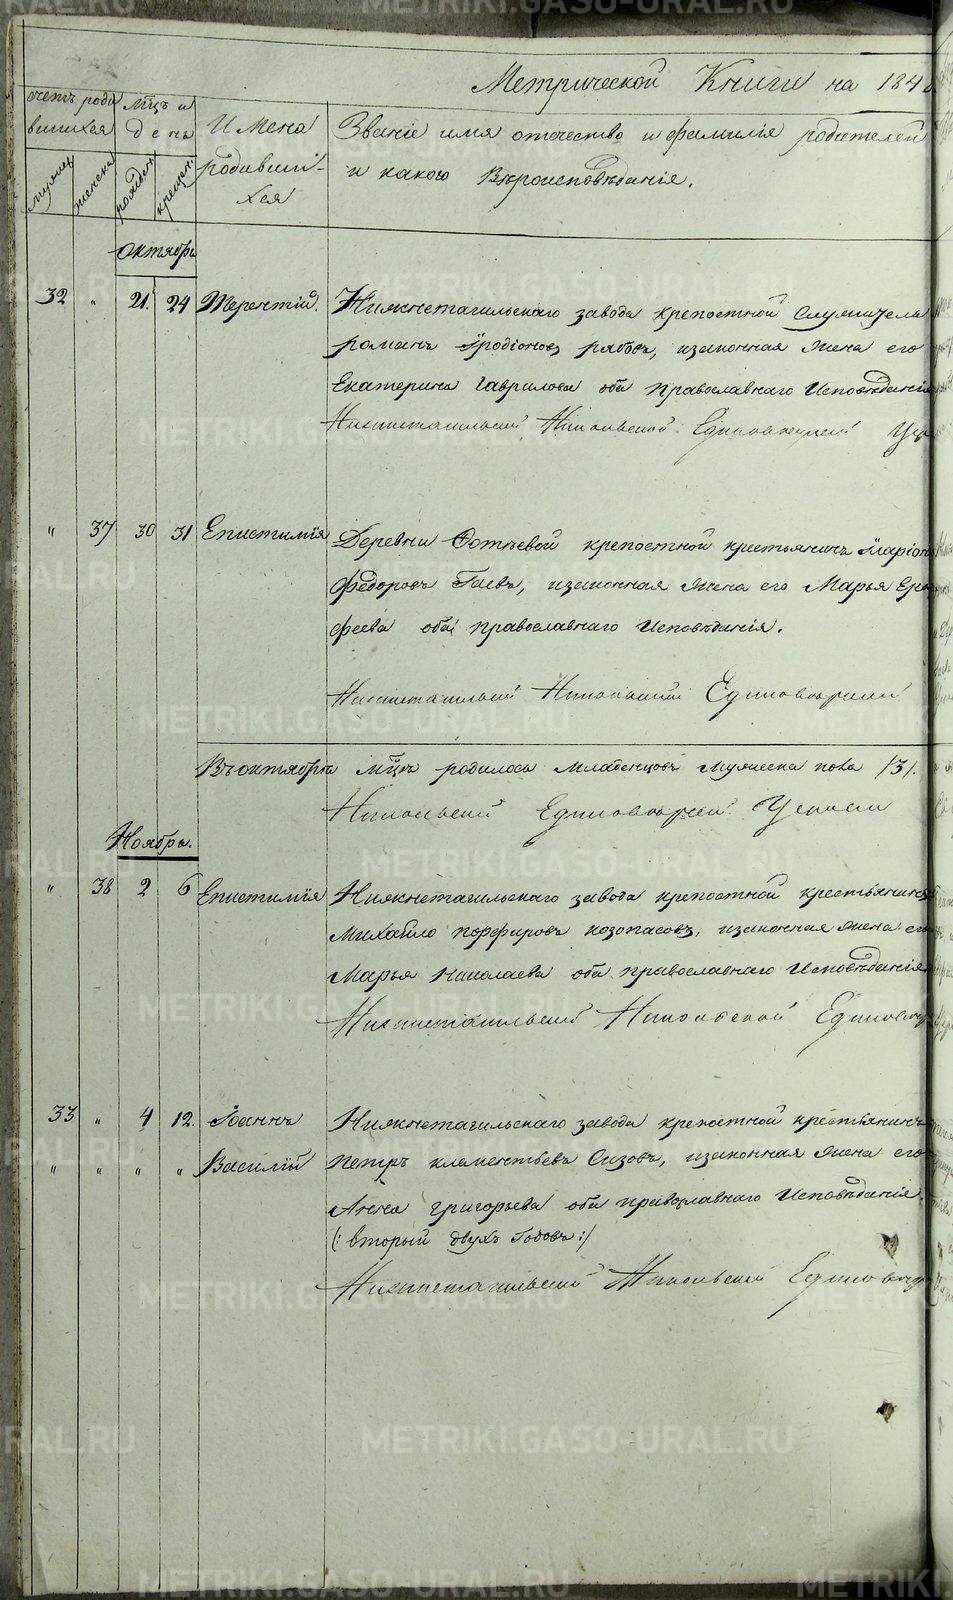 Метрической Книги на 184
счетъ роди
вшихся
мцъ и
день
Имена
родивши-
хся
Званіе имя отечество и фамилія родителей
и какого Вѣроисповѣданія.
мужска
женска
рожден
крещен
Октябрь
32 " 21. 24 Терентій. Нижнетагильскаго завода крепостной служитель
романъ Іродіоновъ рябовъ, изаконная жена его
Екатерина Гаврилова оба православнаго Исповѣданія
Нижнетагильской Никольской Единоверческой
" 37 30 31 Епистимія Деревни Фотѣевой крепостной крестьянинъ Іларіонъ
Федоровъ Гаевъ, изаконная жена его Марья Еро
феева оба православнаго Исповѣданія.
Нижнетагильской Никольской Единоверческой
Въ октябрѣ мцѣ родилось младенцовъ мужеска пола /3/.
Никольской Единоверческой Церкви
Ноябрь.
" 38 2 6 Епистимія Нижнетагильскаго завода крепостной крестьянинъ
Михайло порфировъ козопасовъ, изаконная жена его
Марья Николаева оба православнаго Исповѣданія
Нижнетагильской Никольской Единоверч
33 " 4 12. Іоаннъ Нижнетагильскаго завода крепостной крестьянинъ
" " " " Василій Петръ климентьевъ Сизовъ, изаконная жена его
Анна григорьева оба православнаго Исповѣданія.
(: вторый двухъ Годовъ :)
Нижнетагильской Никольской Единоверч
METRIKI.GASO-URAL.RU